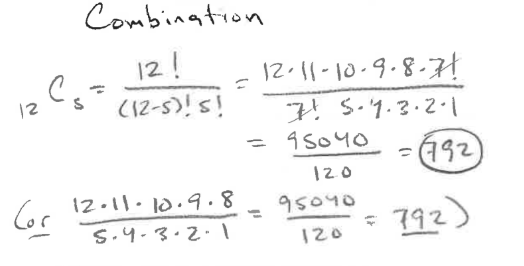 Combination
12C5 = 12!/(12-5)!5! = 12·11·10·9·8·7!/7! 5·4·3·2·1
= 95040/120 = 792
(or 12·11·10·9·8/5·4·3·2·1 = 95040/120 = 792)